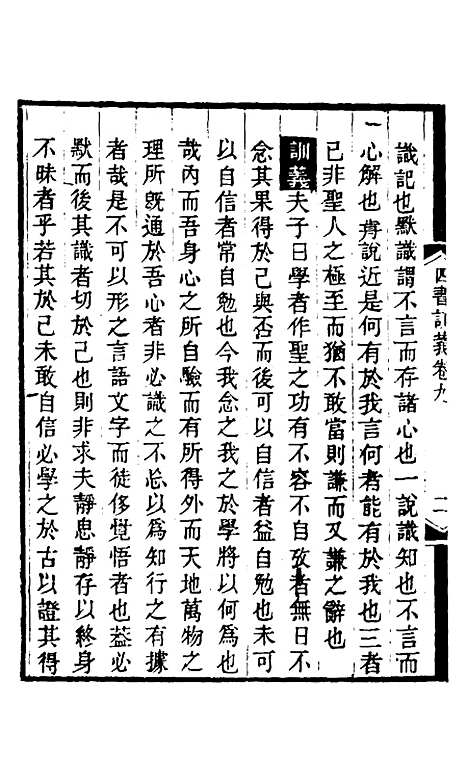 四書訓義卷九
二
識記也默識謂不言而存諸心也一說識知也不言而
心解也前說近是何有於我言何者能有於我也三者
已非聖人之極至而猶不敢當則謙而又謙之辭也
訓義夫子曰學者作聖之功有不容不自攷者無日不
念其果得於己與否而後可以自信者益自勉也未可
以自信者常自勉也今我念之我之於學將以何為也
哉內而吾身心之所自驗而有所得外而天地萬物之
理所旣通於吾心者非必識之不忘以為知行之有據
者哉是不可以形之言語文字而徒侈覺悟者也葢必
默而後其識者切於己也則非求夫靜息靜存以終身
不昧者乎若其於己未敢自信必學之於古以證其得